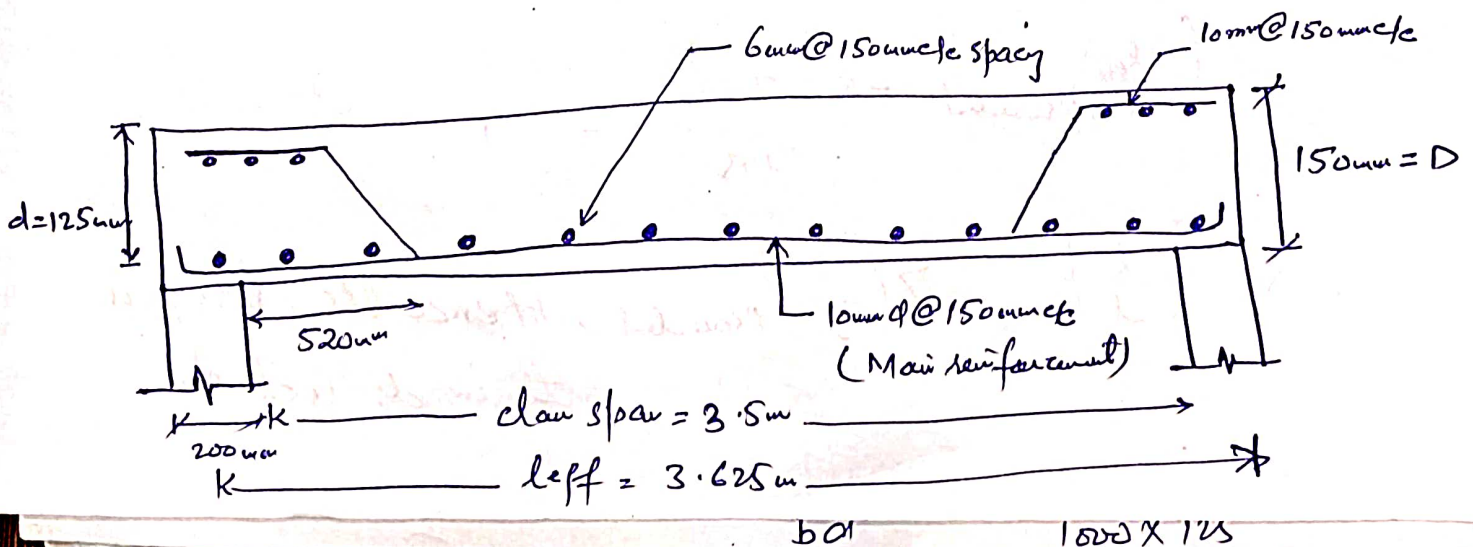 6mm@150mmc/c spacing
10mm@150mmc/c
d=125mm
150mm = D
520mm
10mmφ@150mmc/c
(Main reinforcement)
clear span = 3.5m
200mm
leff = 3.625m
bd
1000 X 125